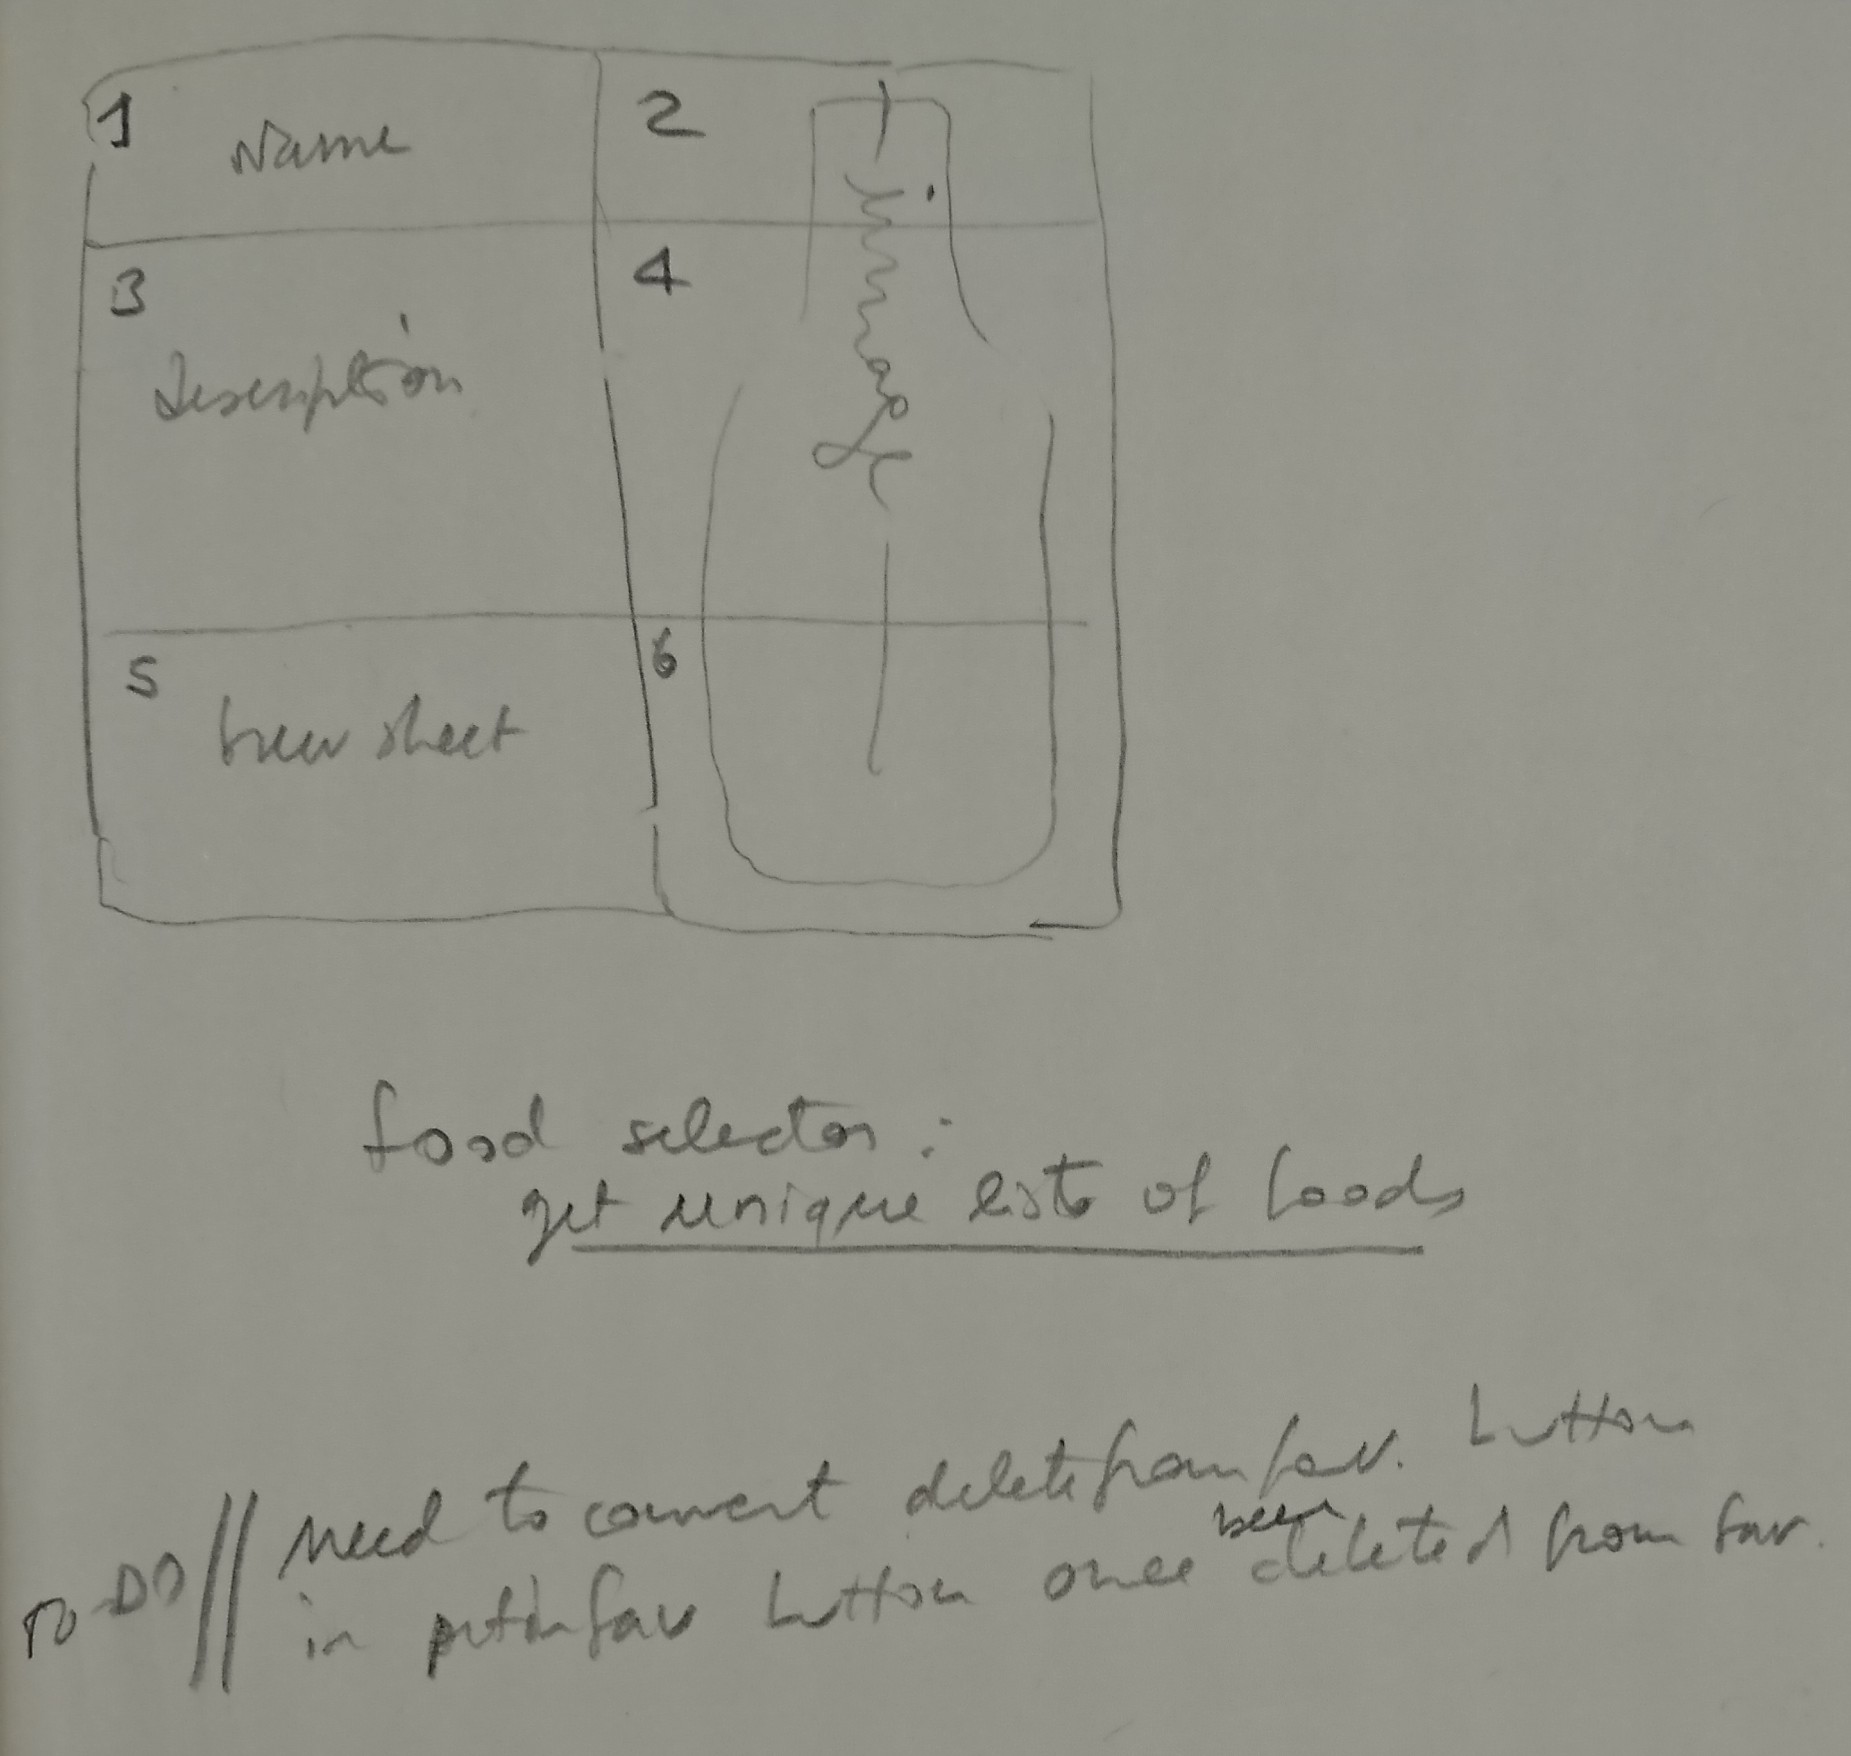 1 Name 2
3 Description 4
Image
5 beer sheet 6
food selector :
get unique lists of foods
TO DO // need to convert delete from fav. button
in putinfav button once been deleted from fav.